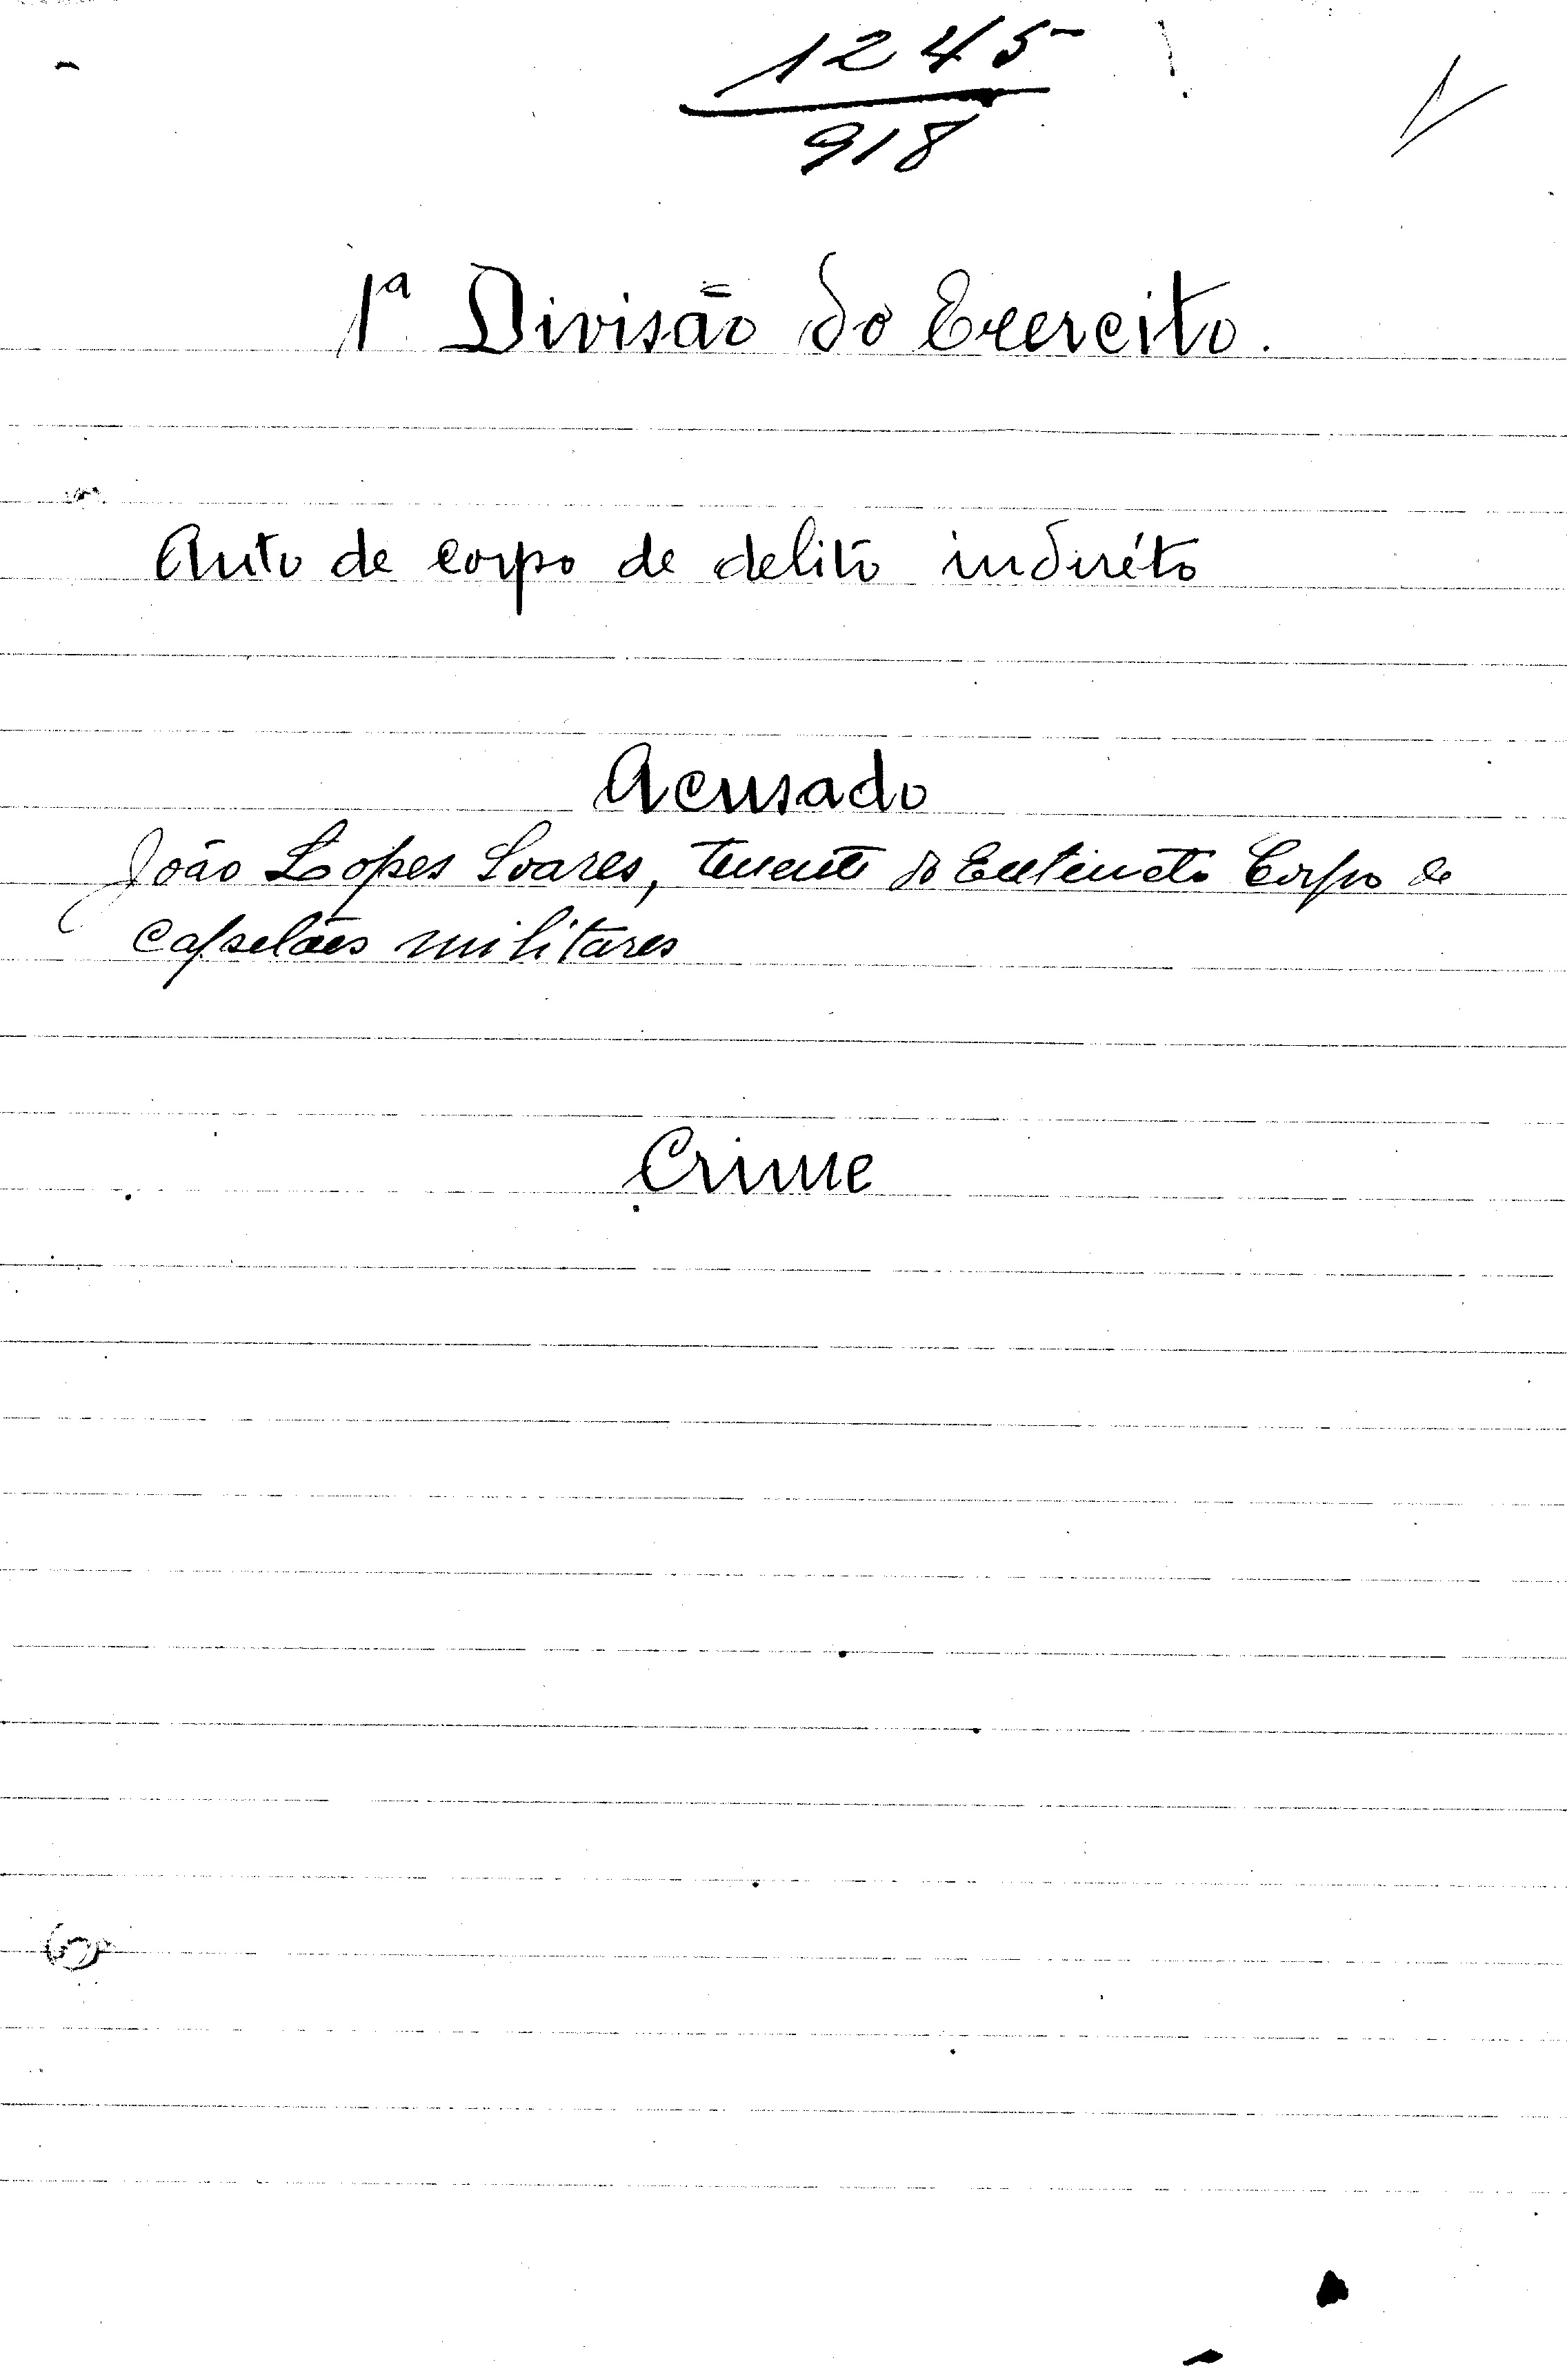 1245
918
1ª Divisão do Exercito.
Auto de corpo de delito indiréto
Acusado
João Lopes Soares, tenente do Extincto Corpo de
Capelães militares
Crime